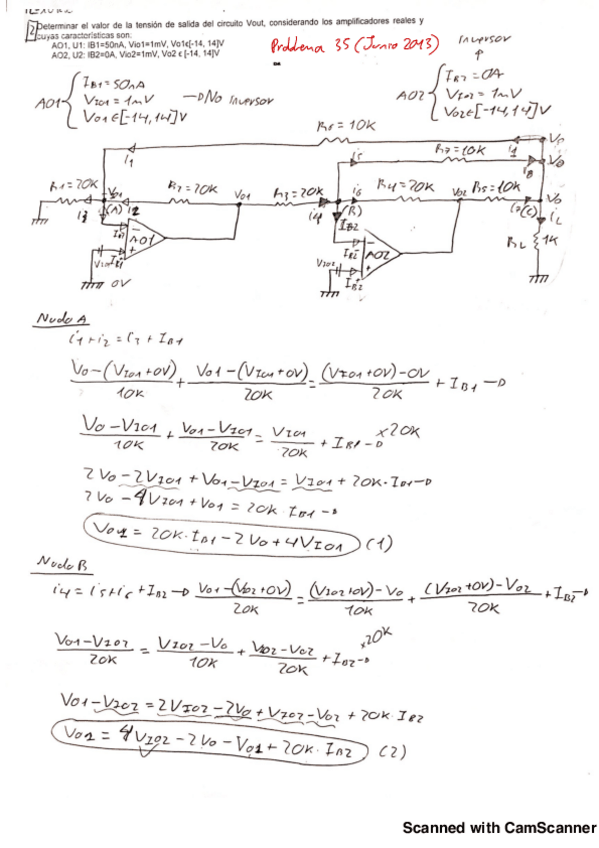 2 Determinar el valor de la tensión de salida del circuito Vout, considerando los amplificadores reales y
cuyas características son:
AO1, U1: IB1=50nA, Vio1=1mV, Vo1ε[-14, 14]V
AO2, U2: IB2=0A, Vio2=1mV, Vo2 ε [-14, 14]V
Problema 35 (Junio 2013)
Inversor
AO1 { IB1 = 50nA
VIO1 = 1mV → No Inversor
VO1 ∈ [-14,14]V
AO2 { IB2 = 0A
VIO2 = 1mV
VO2 ∈ [-14,14]V
R6 = 10K
i1 i5 R7 = 10K i1 i8 Vo Vo
R1 = 20K VO1 R2 = 20K VO1 R3 = 20K i6 R4 = 20K VO2 R5 = 10K Vo
i3 (A) i2 i4 (B) i7 (C) iL
IB1 AO1 IB2 AO2 RL 1K
VIO1 IB1 VIO2 IB2
0V
Nudo A
i1 + i2 = i3 + IB1
Vo-(VIO1+0V)/10K + VO1-(VIO1+0V)/20K = (VIO1+0V)-0V/20K + IB1 →
Vo-VIO1/10K + VO1-VIO1/20K = VIO1/20K + IB1 → x20K
2Vo - 2VIO1 + VO1 - VIO1 = VIO1 + 20K·IB1 →
2Vo - 4VIO1 + VO1 = 20K·IB1 →
VO1 = 20K·IB1 - 2Vo + 4VIO1 (1)
Nudo B
i4 = i5 + i6 + IB2 → VO1-(VO2+0V)/20K = (VIO2+0V)-Vo/10K + (VIO2+0V)-VO2/20K + IB2 →
VO1-VIO2/20K = VIO2-Vo/10K + VIO2-VO2/20K + IB2 → x20K
VO1 - VIO2 = 2VIO2 - 2Vo + VIO2 - VO2 + 20K·IB2
VO2 = 4VIO2 - 2Vo - VO1 + 20K·IB2 (2)
Scanned with CamScanner